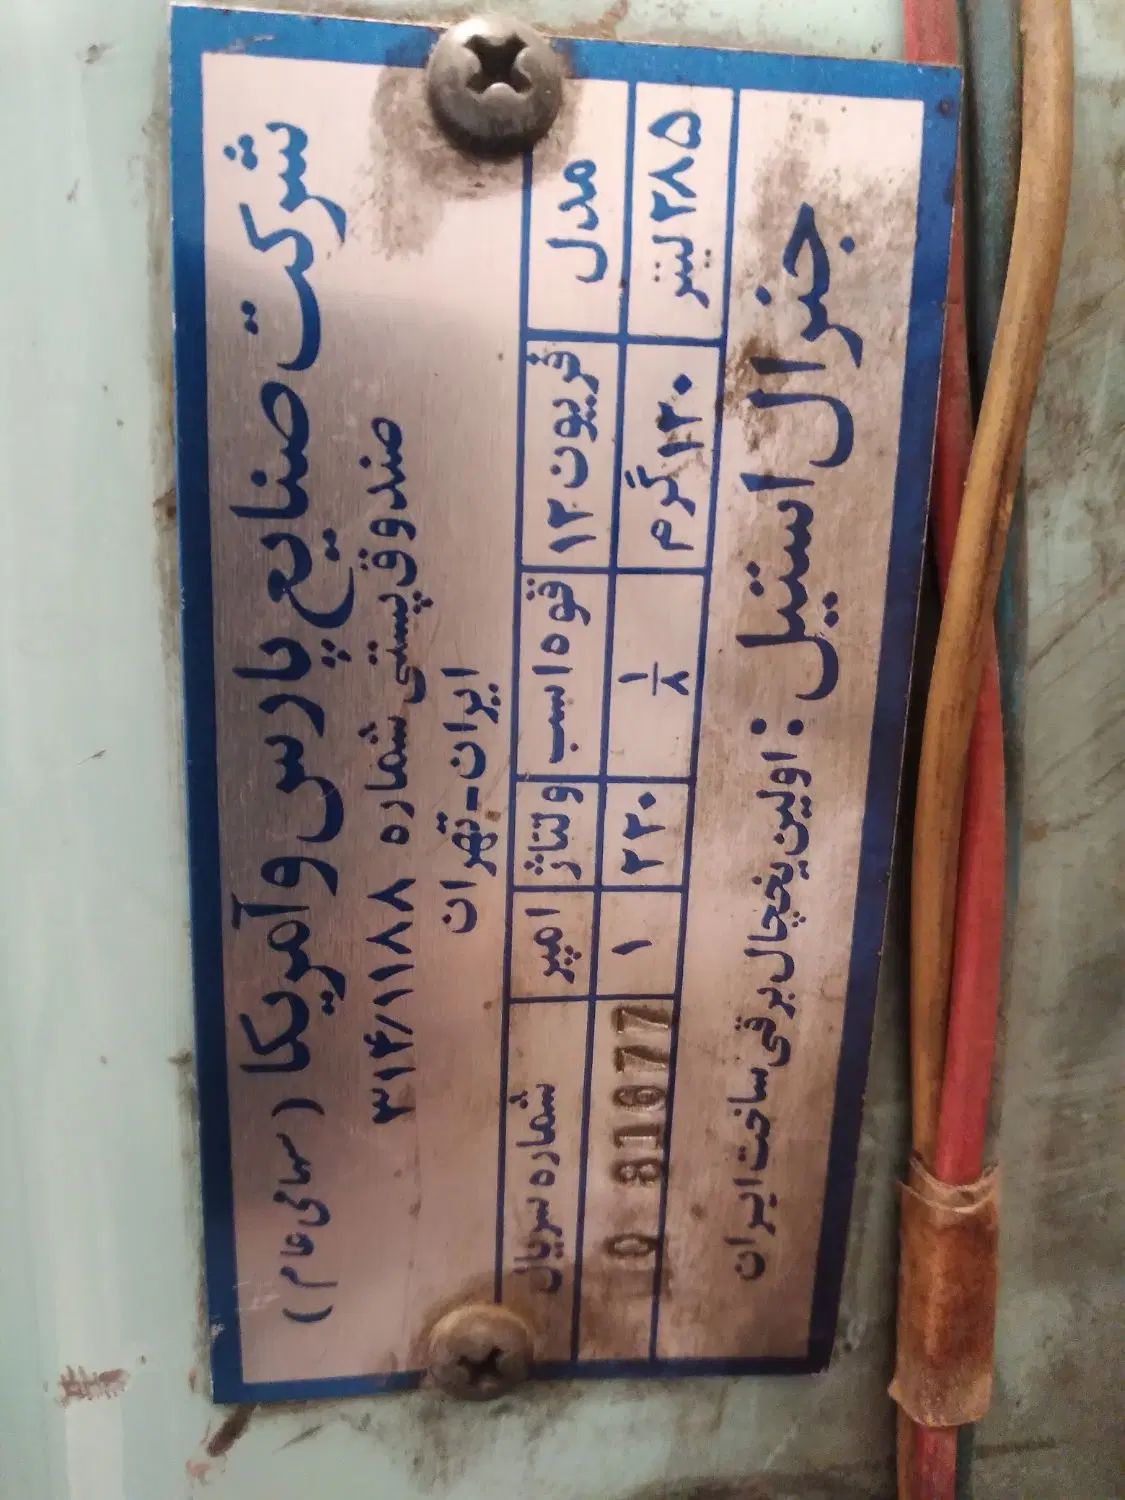 شرکت صنایع پارس و آمریکا (سهامی عام)
صندوق پستی شماره ۳۱۴/۱۱۸۸
ایران-تهران
مدل فریون ۱۲ قوه اسب ولتاژ امپر شماره سریال
۲۸۵ لیتر ۱۲۰ گرم ۱/۸ ۲۲۰ ۱ 0 81677
جنرال استیل : اولین یخچال برقی ساخت ایران